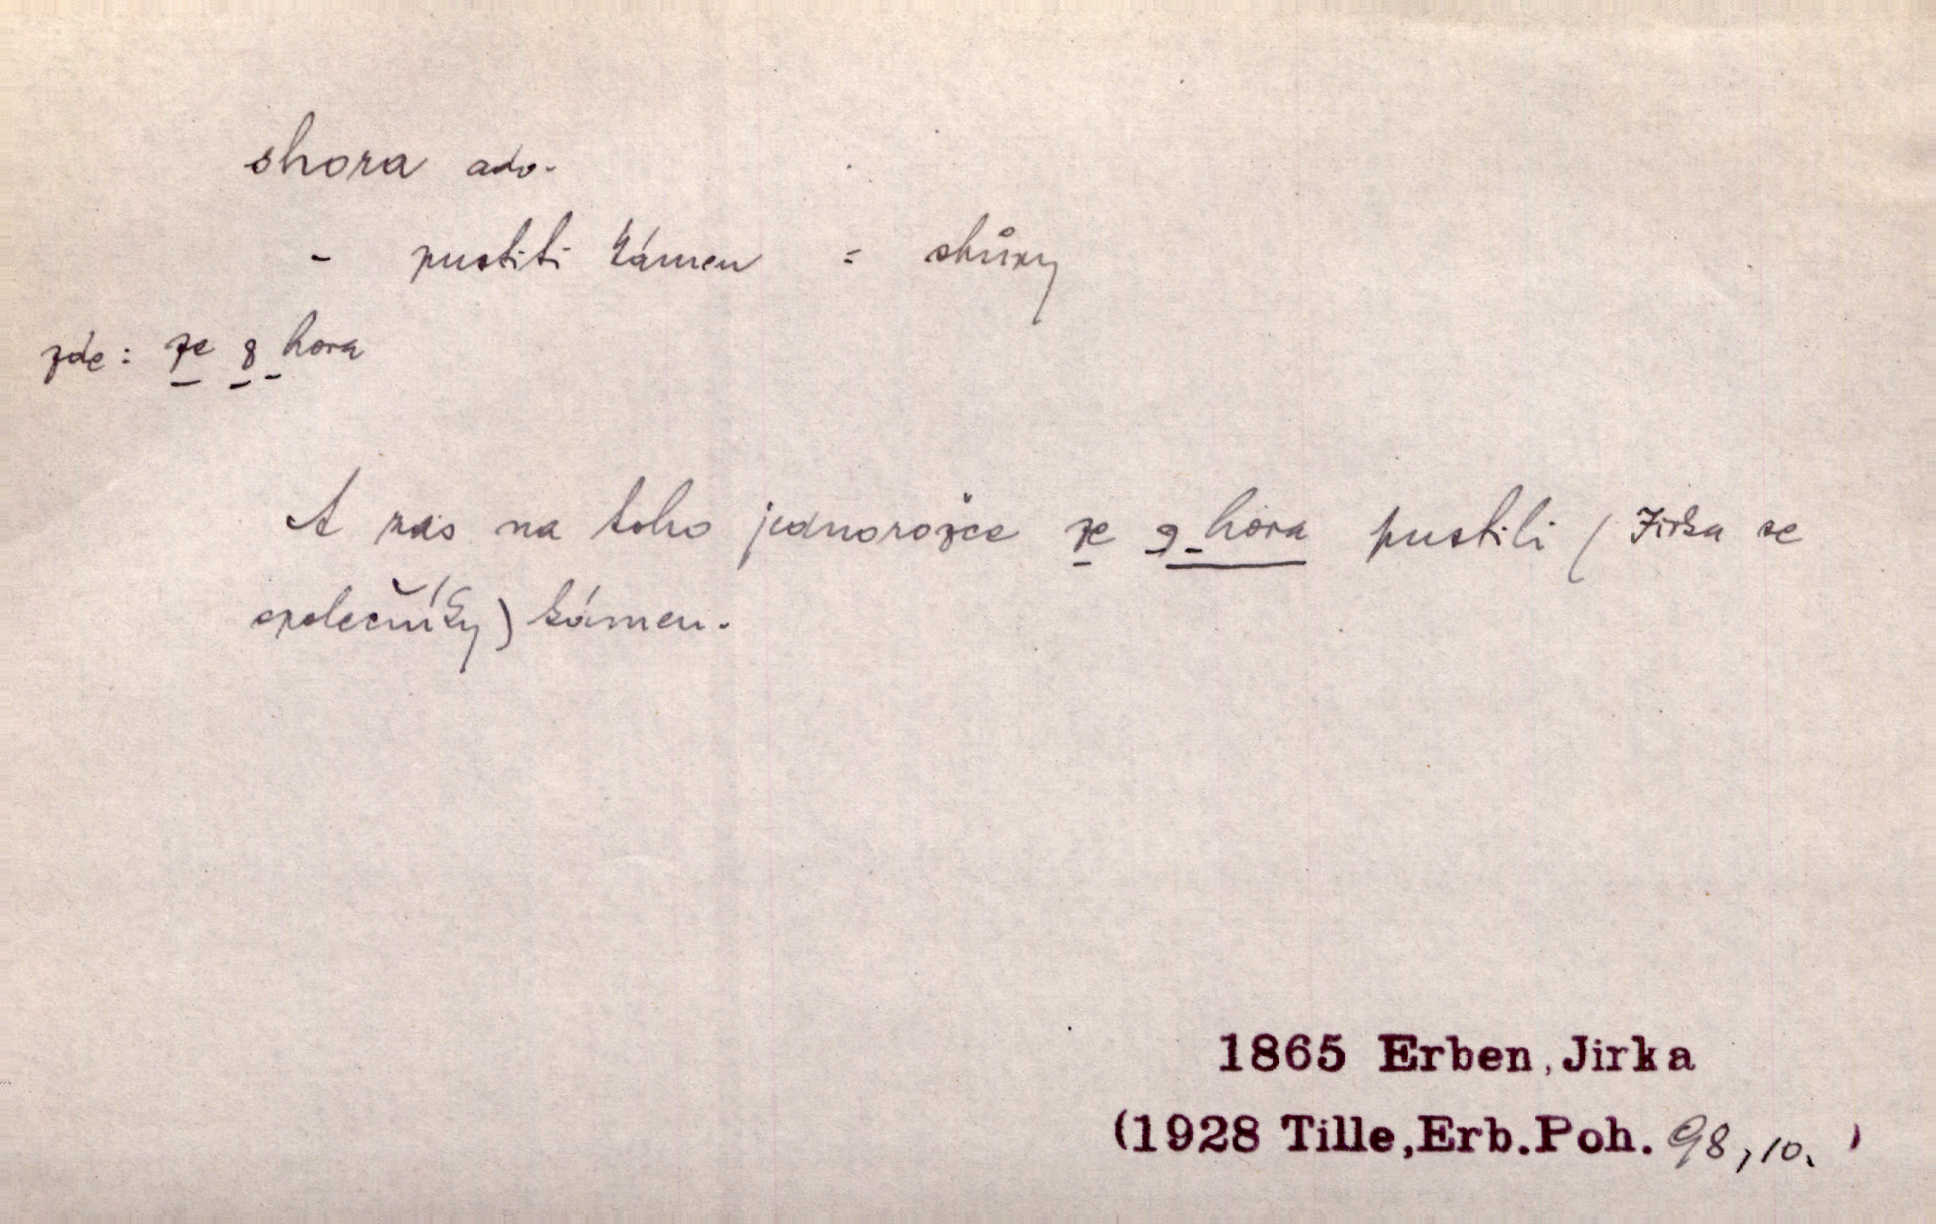 shora adv.
- pustiti kámen = shůry
zde: ze s hora
A zas na toho jednorožce ze s hora pustili (Jirka se
společníky) kámen.
1865 Erben, Jirka
(1928 Tille, Erb. Poh. 98, 10. )